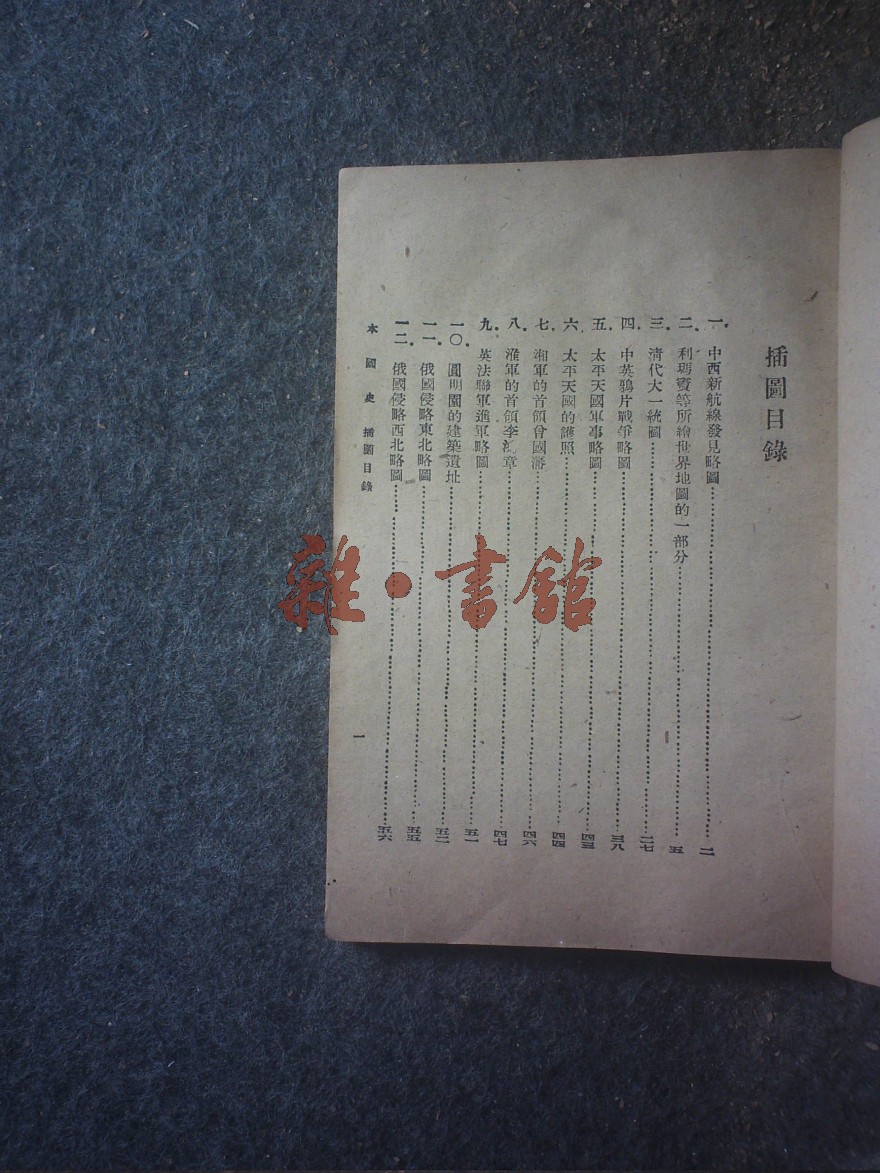 插圖目錄
一．中西新航線發見略圖……二
二．利瑪竇等所繪世界地圖的一部分……五
三．清代大一統圖……二七
四．中英鴉片戰爭略圖……三八
五．太平天國軍事略圖……四三
六．太平天國的護照……四四
七．湘軍的首領曾國藩……四六
八．淮軍的首領李鴻章……四七
九．英法聯軍進軍略圖……五一
一〇．圓明園的建築遺址……五二
一一．俄國侵略東北略圖……五五
一二．俄國侵略西北略圖……五六
本國史 插圖目錄
一
雜·書館